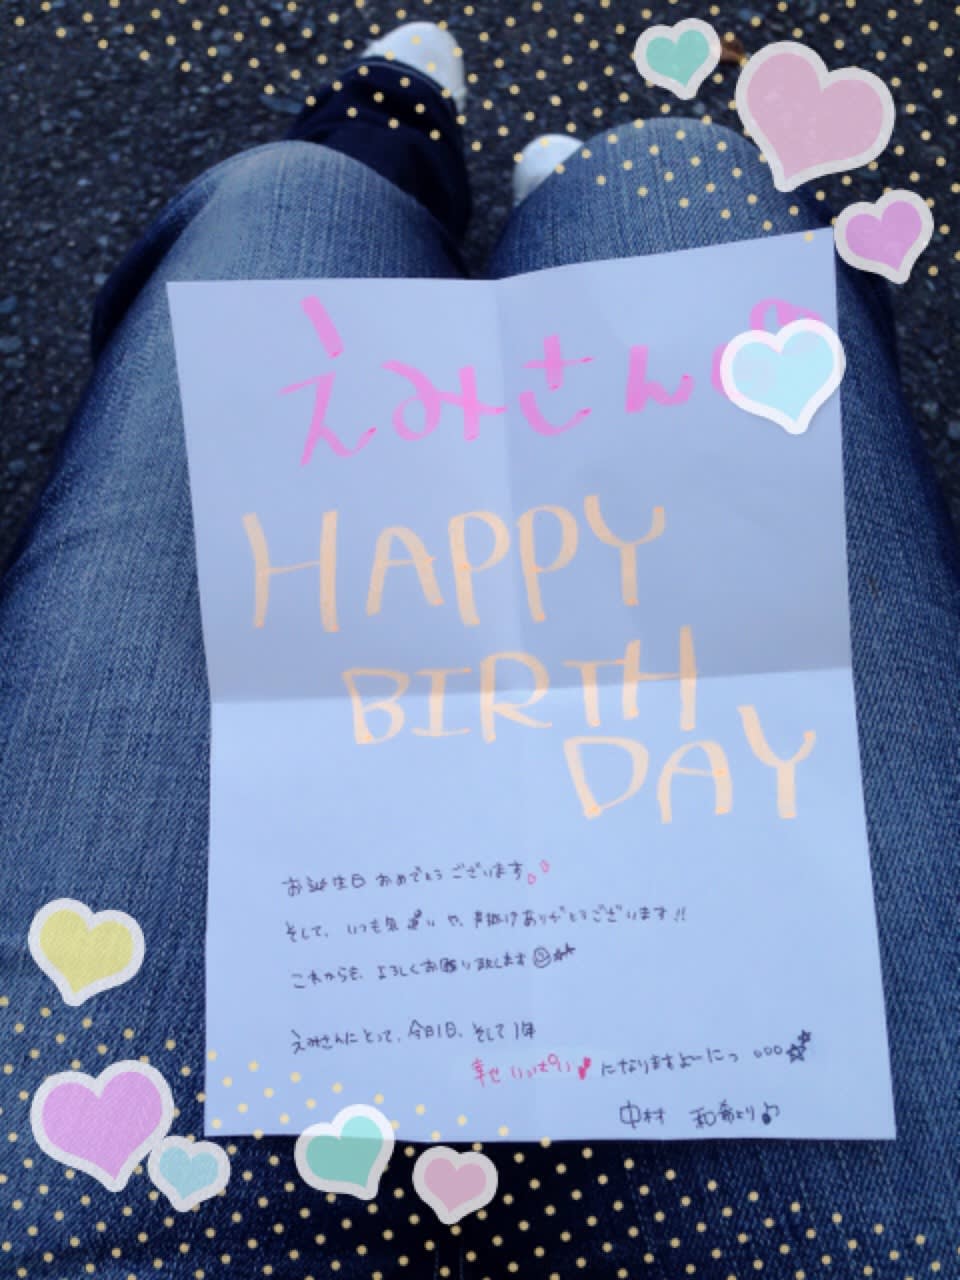 えみさん
HAPPY
BIRTH
DAY
お誕生日おめでとうございます。
そして、いつも気遣いや、声掛けありがとうございます!!
これからも、よろしくお願い致します
えみさんにとって、今日1日、そして1年
幸せいっぱい になりますよーにっ 。。。
中村 和希より♪